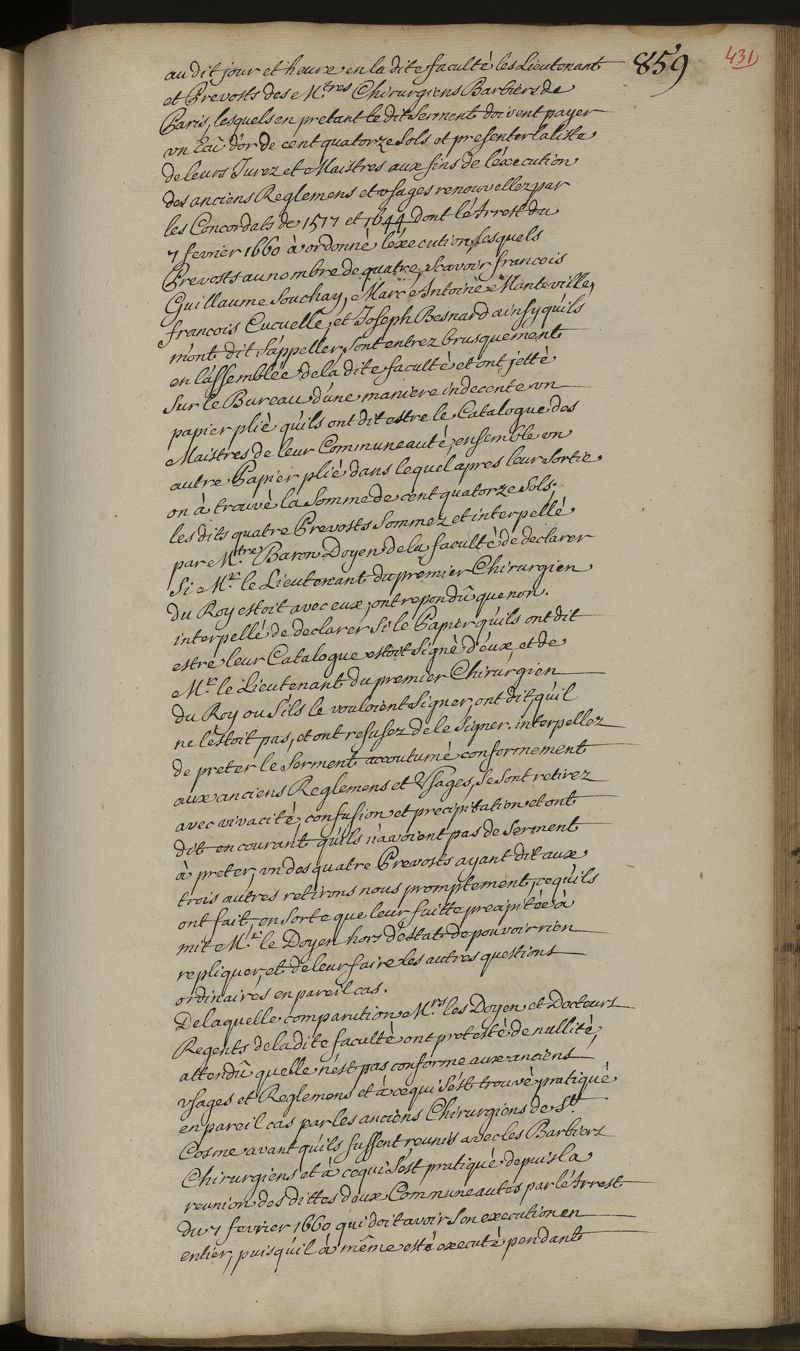 859
431
au dit jour et heure en la dite faculté les Lieutenant
et Prevosts des M.tres Chirurgiens Barbiers de
Paris, lesquels en pretant le dit Serment doivent payer
vn Ecû d'or de cent quatorze Sols et presenter la liste
de leurs Jurez et Maistres aux fins de l'éxecution
des anciens Reglemens et vsages renouvellez par
les Concordats de 1577 et 1644 dont l'Arrest du
7 fevrier 1660 à ordonné l'éxecution, lesquels
Prevosts au nombre de quatre, Scavoir francois
Guillaume Souchay, Marc Antoine Manteville,
francois Cucuelle, et Joseph Besnard ainsy qu'ils
m'ont dit s'appeller, Sont entrez brusquement
en l'assemblée de la dite faculté et ont jetté
Sur le Bureau d'une maniere indecente vn
papier plié qu'ils ont dit estre le Catalogue des
Maistres de leur Communeauté, ensemble vn
autre Papier plié dans lequel apres leur Sortie
on à trouvé la Somme de cent quatorze Sols.
les dits quatre Prevosts Sommez et interpellé
par M.tre Baron Doyen de la faculté de declarer
Si M.r le Lieutenant du premier Chirurgien
du Roy estoit avec eux, ont repondû que non.
interpellé de declarer Si le Papier qu'ils ont dit
estre leur Catalogue estoit Signé d'eux et de
M.r le Lieutenant du premier Chirurgien
du Roy ou S'ils le vouloient Signer, ont dit qu'il
ne l'estoit pas, et ont refusez de le Signer. interpellez
de preter le Serment accoutumé conformement
aux anciens Reglemens et Vsages, Se Sont retirez
avec vivacité, confusion et precipitation et ont
dit en courant qu'ils n'avoient pas de Serment
à preter, vn des quatre Prevosts ayant dit aux
trois autres retirons nous promptement, ce qu'ils
ont fait, en Sorte que leur fuitte precipitée à
mit M.r le Doyen hors d'estat de pouvoir rien
repliquer, et de leur faire les autres questions
ordinaires en pareil cas.
De laquelle comparution M.rs les Doyen et Docteurs
Regents de la dite faculté ont protesté de nullité,
attendû quelle n'est pas conforme aux anciens
vsages et Reglemens et à ce qui S'est trouvé pratiqué
en pareil cas par les anciens Chirurgiens de S.t
Cosme avant qu'ils fussent reunis avec les Barbiers
Chirurgiens et à ce qui S'est pratiqué depuis la
reunion des dittes deux Communeautés par l'Arrest
du 7 fevrier 1660 qui doit avoir Son execution en
entier, puisqu'il à même esté executé pendant